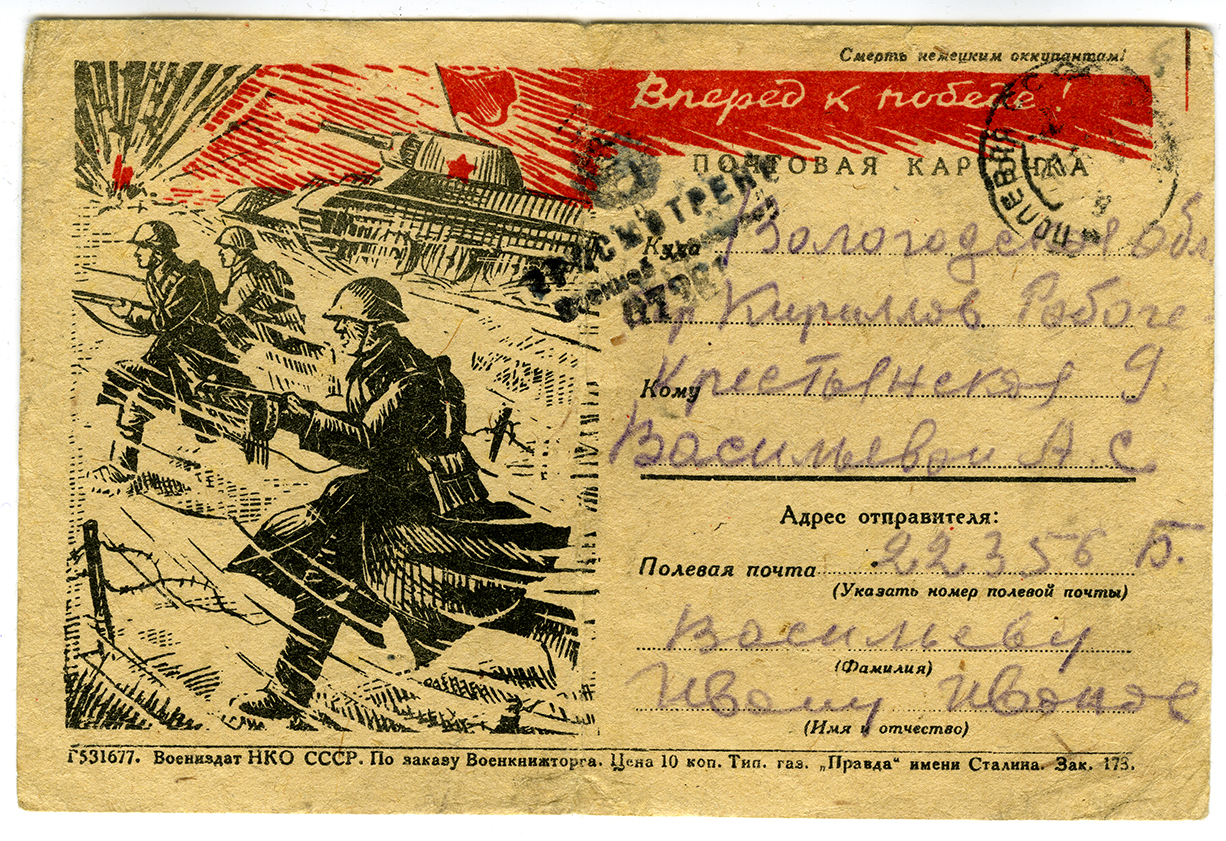 Смерть немецким оккупантам!
Вперед к победе!
ПОЧТОВАЯ КАРТОЧКА
ПРОСМОТРЕНО
Военной Цензурой
Куда Вологодская обл
г Кириллов Рабоче
Кому Крестьянская 9
Васильевой А. С
Адрес отправителя:
Полевая почта 22356 Б.
(Указать номер полевой почты)
Васильеву
(Фамилия)
Ивану Иванов
(Имя и отчество)
Г531677. Воениздат НКО СССР. По заказу Военкнижторга. Цена 10 коп. Тип. газ. „Правда“ имени Сталина. Зак. 173.